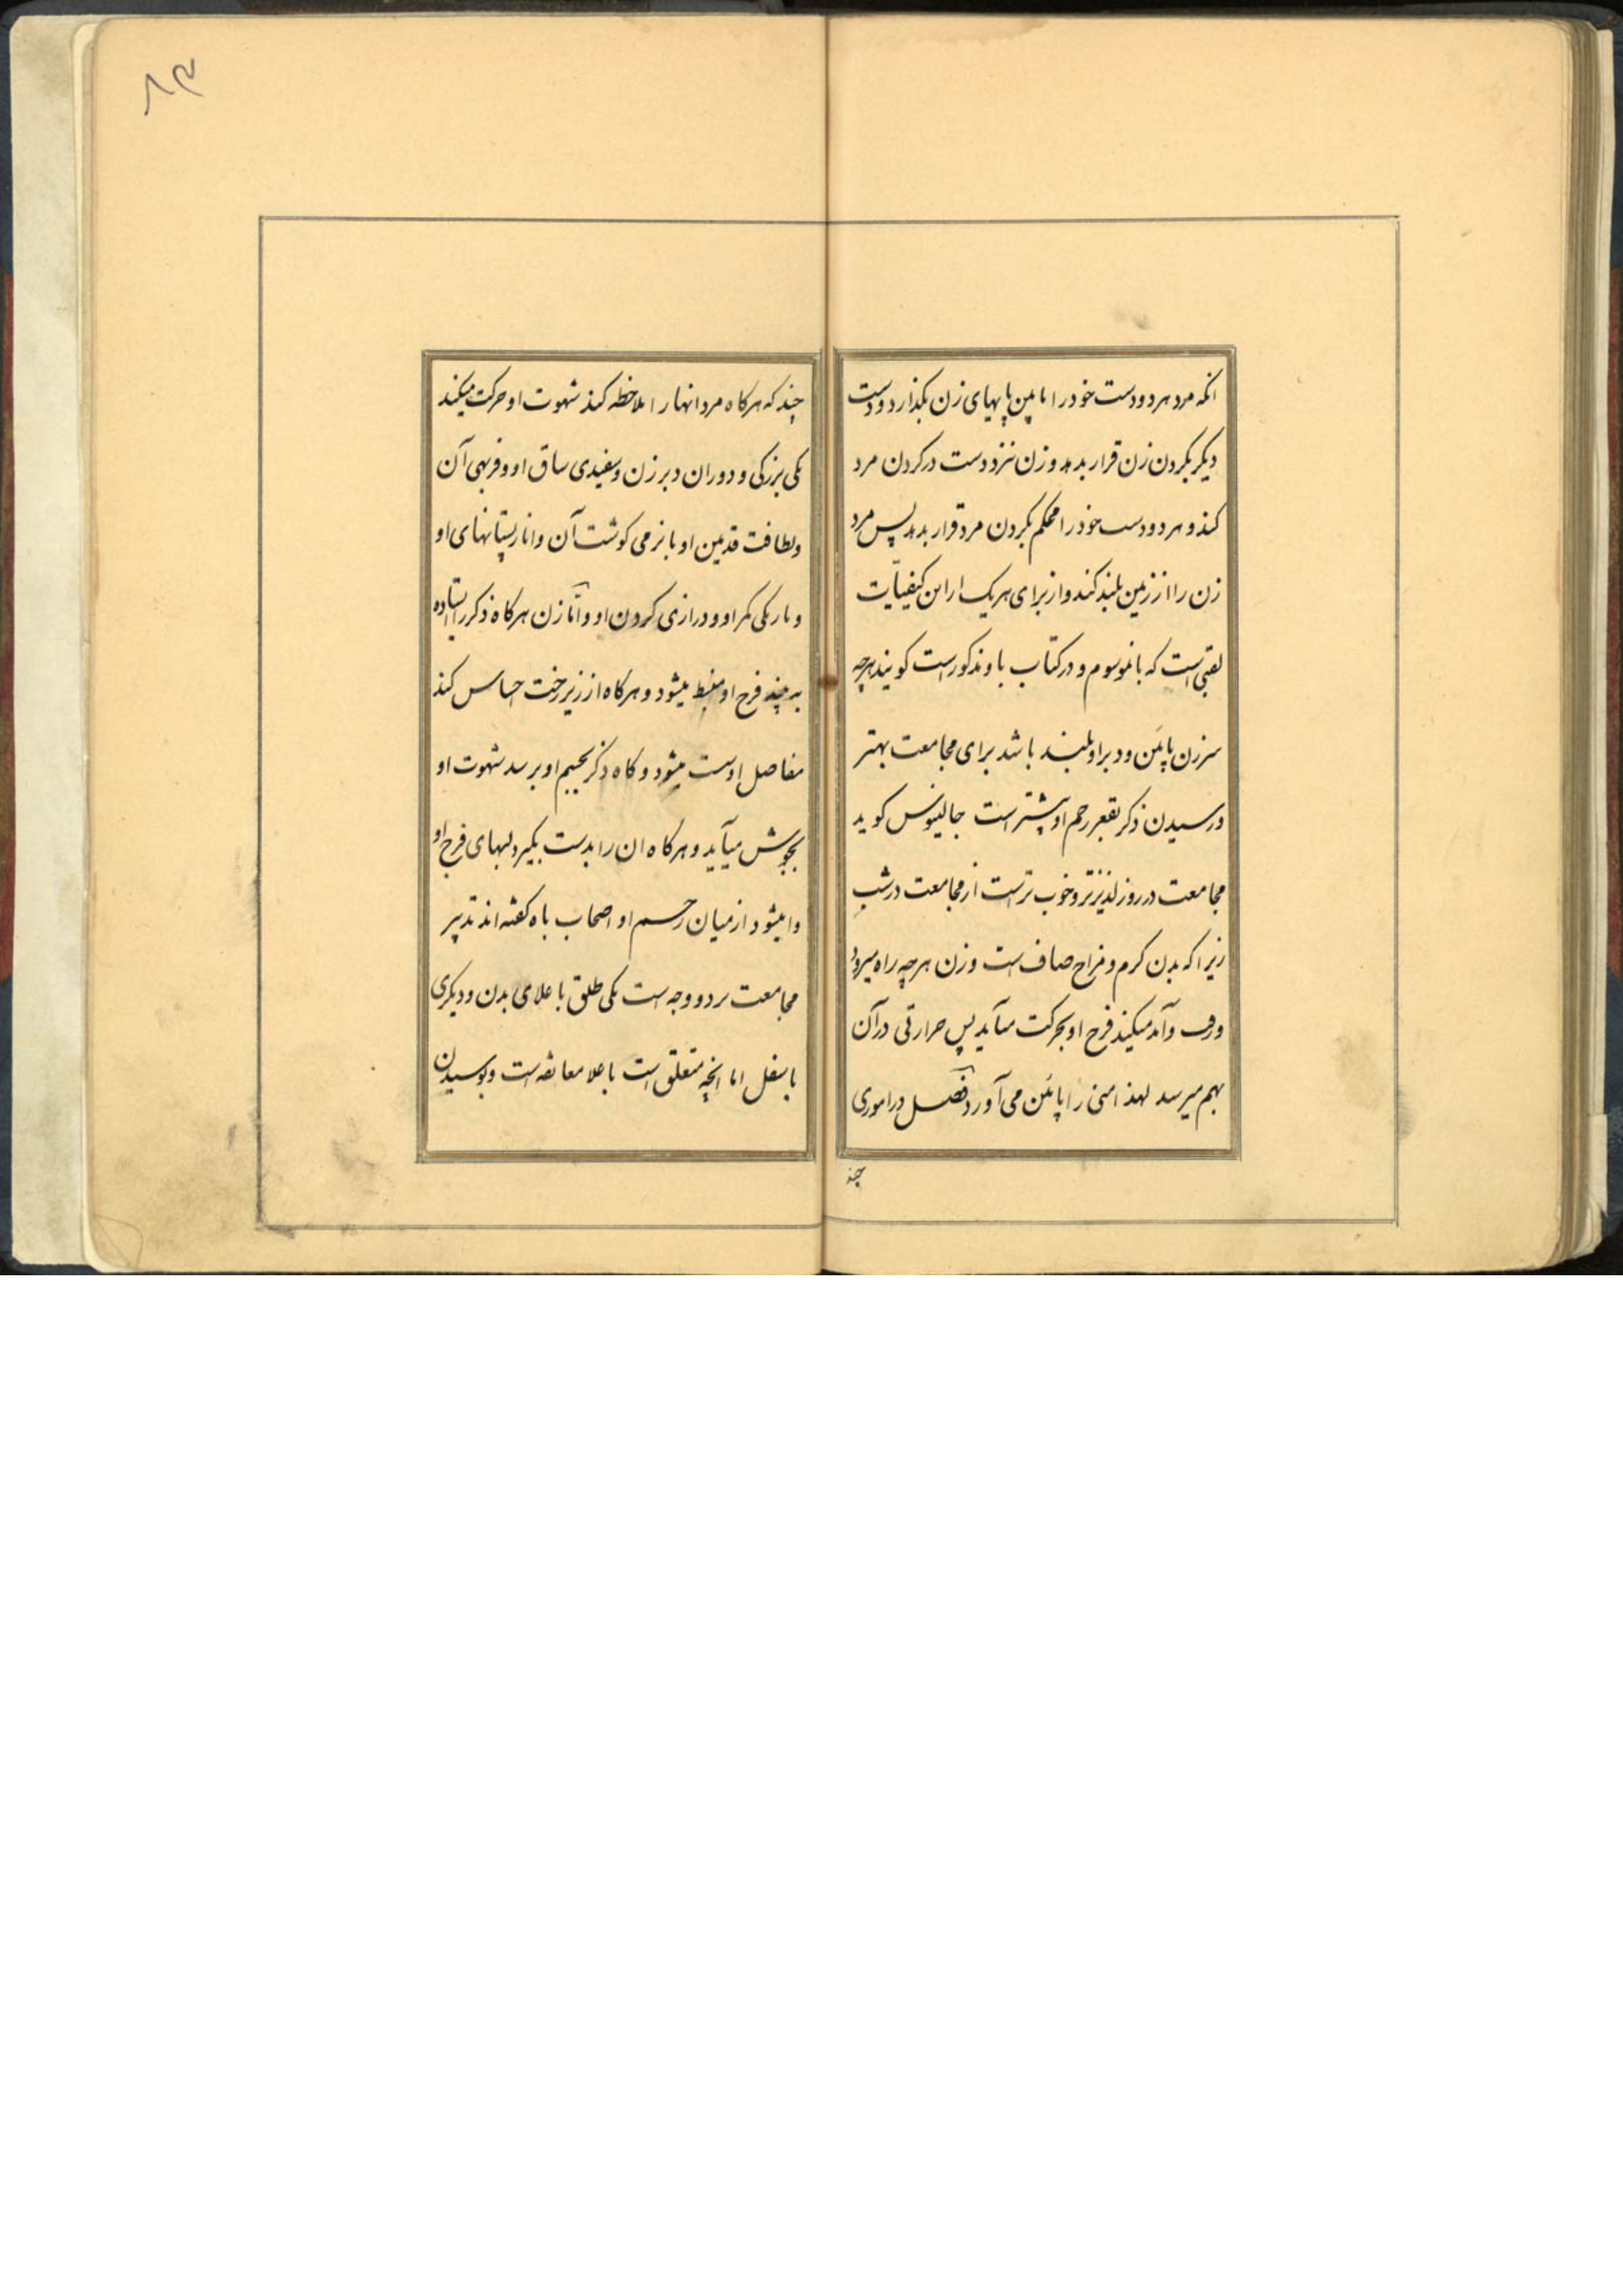 انکه مرد هر دو دست خود را مابین پایهای زن بکذارد و دست
دیکر بکردن زن قرار بدهد و زن نیز دو دست در کردن مرد
کند و هر دو دست خود را محکم بکردن مرد قرار بدهد پس مرد
زن را از زمین بلند کند و از برای هر یک از این کیفیات
لقبی است که بانموسوم و در کتاب باو مذکور است کویند هر چه
سر زن پائین و دبر او بلند باشد برای مجامعت بهتر
و رسیدن ذکر بقعر رحم او بیشتر است جالینوس کوید
مجامعت در روز لذیذتر و خوب تر است از مجامعت در شب
زیرا که بدن کرم و مزاج صاف است و زن هر چه راه میرود
و رفت و آمد میکند فرج او بحرکت میآید پس حرارتی در آن
بهم میرسد لهذا منی را پائین می آورد فصل در اموری
چند
۸۳
چند که هر کاه مرد انها را ملاحظه کند شهوت او حرکت میکند
یکی بزرکی و دوران دبر زن و سفیدی ساق او و فربهی آن
و لطافت قدمین او با نرمی کوشت آن و انار پستانهای او
و باریکی کمر او و درازی کردن او و امّا زن هر کاه ذکر را ایستاده
به بیند فرج او منبسط میشود و هر کاه از زیر رخت احساس کند
مفاصل او سست میشود و کاه ذکر بجسم او برسد شهوت او
بجوش میآید و هر کاه ان را بدست بکیرد لبهای فرج او
وا میشود از میان رحم او اصحاب باه کفته اند تدبیر
مجامعت بر دو وجه است یکی متعلق باعلای بدن و دیکری
باسفل اما انچه متعلق است باعلا معانقه است و بوسیدن